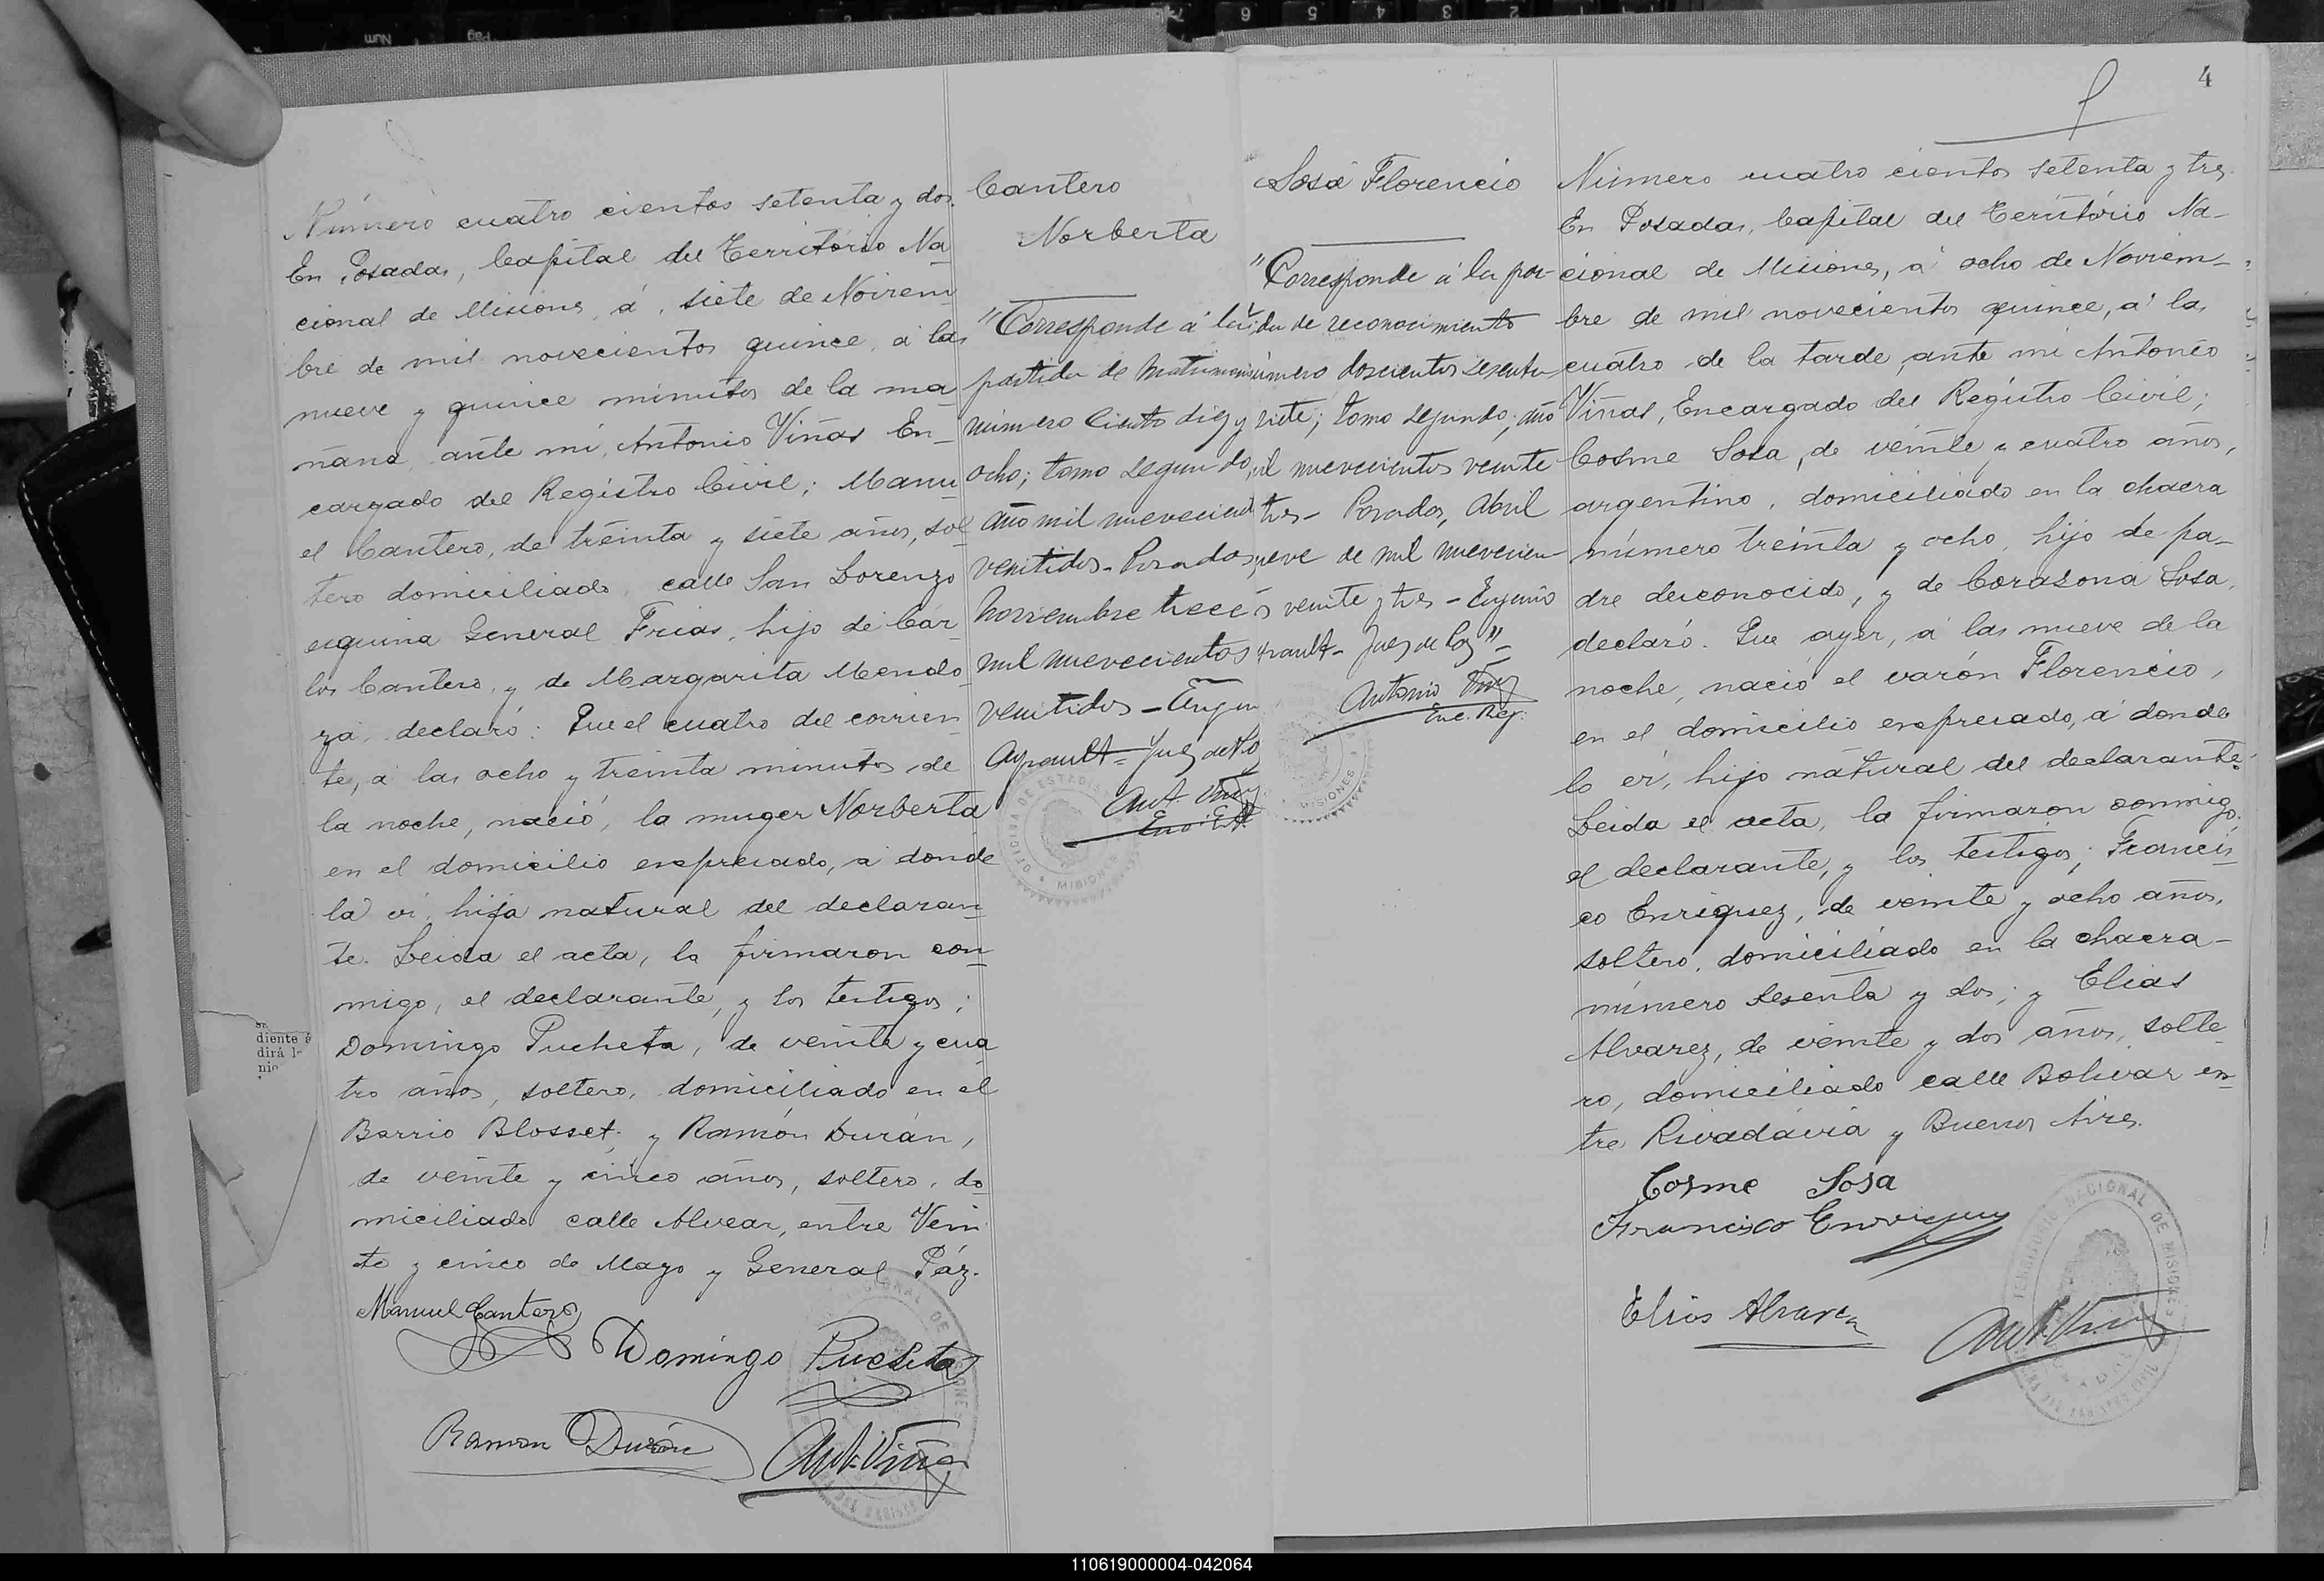 Número cuatro cientos setenta y dos.
En Posadas, Capital del Territorio Na
cional de Misiones, á, siete de Noviem
bre de mil novecientos quince, á las
nueve y quince minutos de la ma
ñana, ante mi, Antonio Viñas En-
cargado del Registro Civil; Manu
el Cantero, de treinta y siete años, sol
tero domiciliado, calle San Lorenzo
esquina General Frias, hijo de Car-
los Cantero, y de Margarita Mendo
za, declaró: Que el cuatro del corrien
te, á las ocho y treinta minutos de
la noche, nació, la muger Norberta
en el domicilio expresado, á donde
la ví, hija natural del declaran
te. Leida el acta, la firmaron con
migo, el declarante, y los testigos;
Domingo Pucheta, de veinte y cua
tro años, soltero, domiciliado en el
Barrio Blosset; y Ramón Durán,
de veinte y cinco años, soltero, do
miciliado calle Alvear, entre Vein
te y cinco de Mayo y General Páz.
Manuel Cantero
Domingo Pucheta
Ramon Durán
Ant. Viñas
Cantero
Norberta
"Corresponde á la
partida de matrimoni
número Ciento diez y
ocho; tomo segundo,
año mil nuevecient
ventidos - Posadas
Noviembre trece
mil nuevecientos
ventidos - Eugen
Ant. Viñas
OFICINA DE ESTADIS
MISIONES
Sosa Florencio
"Corresponde á la par-
tida de reconocimiento
número doscientos sesenta
siete; tomo segundo; año
mil nuevecientos veinte
tres - Posadas, Abril
nueve de mil nuevecien
s veinte y tres - Eugenio
Juez de Paz" -
Antonio Viñas
Enc. Reg.
MISIONES
4
Número cuatro cientos setenta y tres.
En Posadas, Capital del Territorio Na-
cional de Misiones, á ocho de Noviem-
bre de mil novecientos quince, á las
cuatro de la tarde, ante mi Antonio
Viñas, Encargado del Registro Civil;
Cosme Sosa, de veinte y cuatro años,
argentino, domiciliado en la chacra
número treinta y ocho, hijo de pa-
dre desconocido, y de Corasona Sosa,
declaró. Que ayer, á las nueve de la
noche, nació el varón Florencio,
en el domicilio expresado, á donde
lo ví, hijo natural del declarante.
Leida el acta, la firmaron conmigo
el declarante, y los testigos; Francis
co Enriquez, de veinte y ocho años,
soltero, domiciliado en la chacra-
número sesenta y dos; y Elias
Alvarez, de veinte y dos años, solte
ro, domiciliado calle Bolivar en
tre Rivadavia y Buenos Aires.
Cosme Sosa
Francisco Enriquez
Elias Alvarez
Ant. Viñas
diente á
dirá l
nio
110619000004-042064